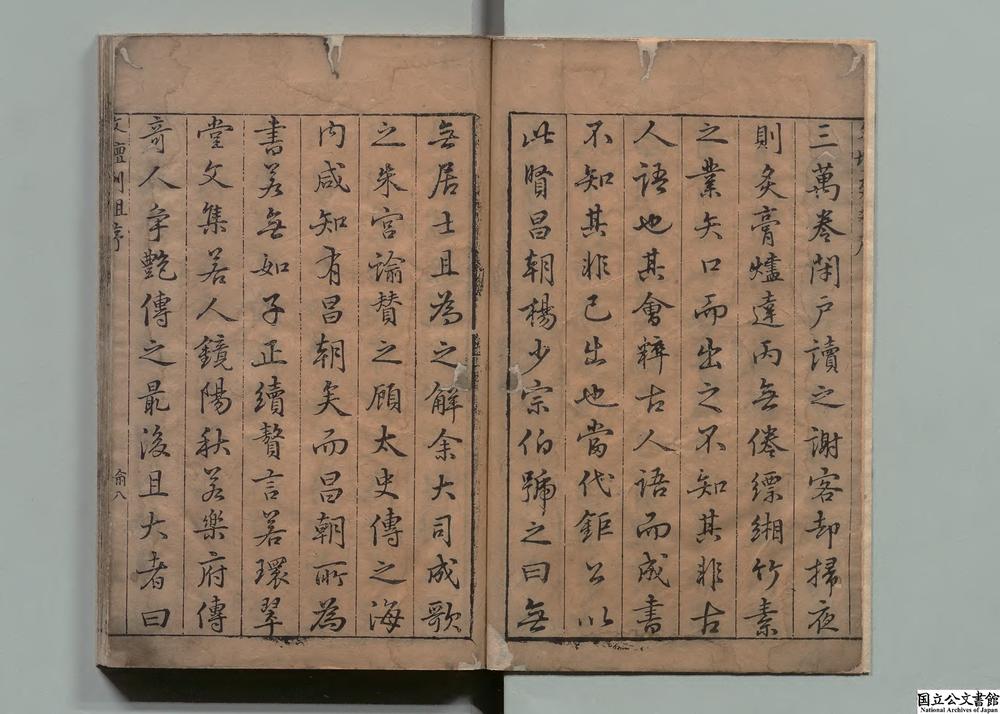 三萬卷閉戶讀之謝客却掃夜
則炙膏爐達丙無倦縹緗竹素
之業矢口而出之不知其非古
人語也其會粹古人語而成書
不知其非己出也當代鉅公以
此賢昌朝楊少宗伯號之曰無
無居士且為之解余大司成歌
之朱宮諭贊之顧太史傳之海
內咸知有昌朝矣而昌朝所為
書若無如子正續贅言若環翠
堂文集若人鏡陽秋若樂府傳
奇人爭艷傳之最後且大者曰
文壇列俎序
俞八
国立公文書館
National Archives of Japan